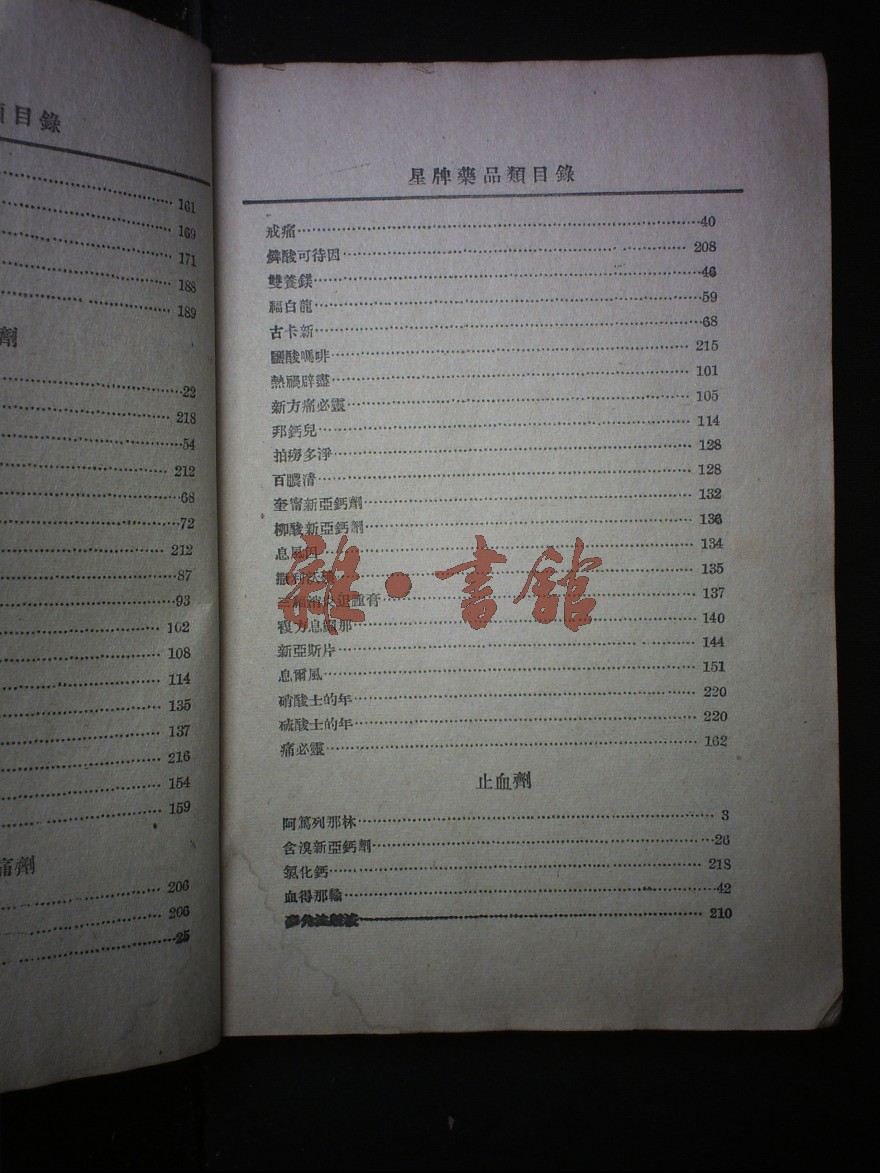 目錄
161
169
171
188
189
劑
22
218
54
212
68
72
212
87
93
102
108
114
135
137
216
154
159
痛劑
206
206
25
星牌藥品類目錄
戒痛 40
燐酸可待因 208
雙養鎂 46
福白龍 59
古卡新 68
鹽酸嗎啡 215
熱禍辟盡 101
新方痛必靈 105
邦鈣兒 114
拍癆多淨 128
百膿清 128
奎甯新亞鈣劑 132
柳酸新亞鈣劑 136
息風因 134
135
137
複方息爾那 140
新亞斯片 144
息爾風 151
硝酸士的年 220
硫酸士的年 220
痛必靈 162
止血劑
阿篤列那林 3
含溴新亞鈣劑 26
氯化鈣 218
血得那輸 42
210
雜·書館